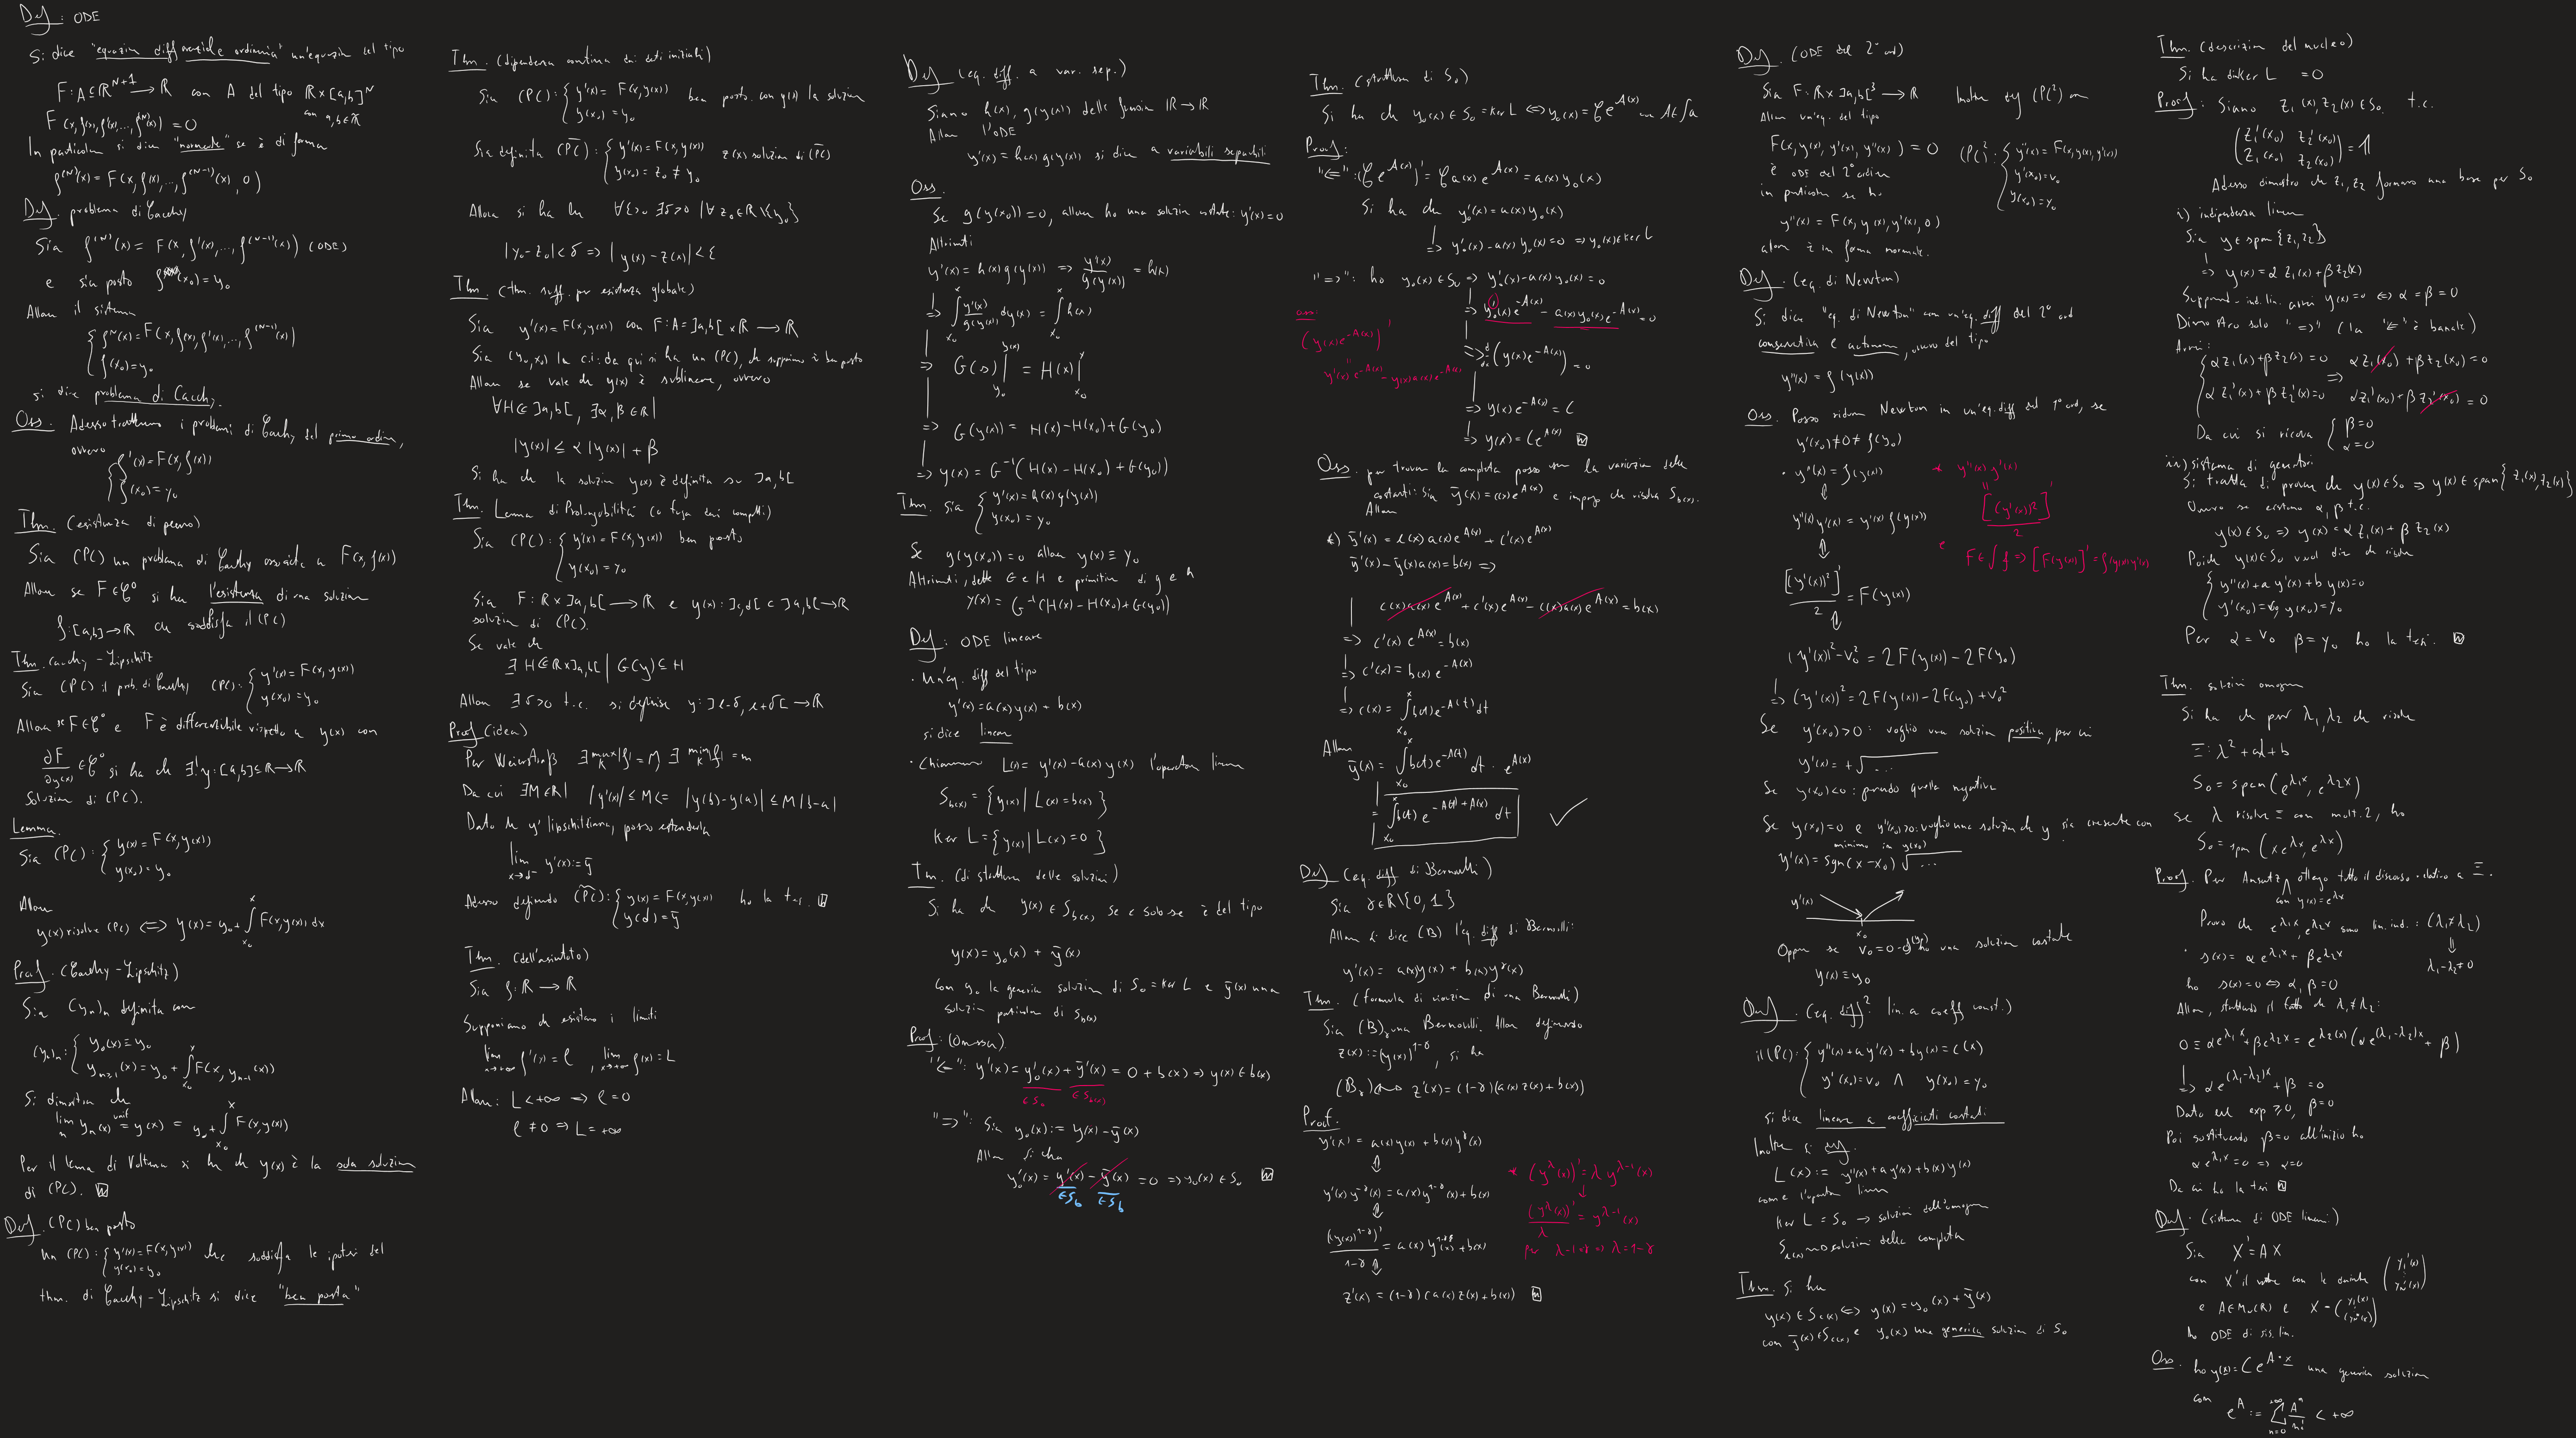 Def: ODE
Si dice "equazione differenziale ordinaria" un'equazione del tipo
F: A⊆ℝ^{N+1} → ℝ con A del tipo ℝ×[a,b]^N
con a,b∈ℝ̃
F(x, f(x), f'(x),..., f^{(N)}(x)) = 0
In particolare si dice "normale" se è di forma
f^{(N)}(x) = F(x, f(x),..., f^{(N-1)}(x), 0)
Def. problema di Cauchy
Sia f^{(N)}(x) = F(x, f'(x),..., f^{(N-1)}(x)) (ODE)
e sia posto f(x₀) = y₀
Allora il sistema
{ f^N(x) = F(x, f(x), f'(x),..., f^{(N-1)}(x))
f(x₀) = y₀
si dice problema di Cauchy.
Oss. Adesso trattiamo i problemi di Cauchy del primo ordine,
ovvero
{ f'(x) = F(x, f(x))
f(x₀) = y₀
Thm. (esistenza di peano)
Sia (PC) un problema di Cauchy associato a F(x, f(x))
Allora se F∈𝒞⁰ si ha l'esistenza di una soluzione
f: [a,b] → ℝ che soddisfa il (PC)
Thm. Cauchy - Lipschitz
Sia (PC) il prob. di Cauchy (PC): { y'(x) = F(x, y(x))
y(x₀) = y₀
Allora se F∈𝒞⁰ e F è differenziabile rispetto a y(x) con
∂F/∂y(x) ∈ 𝒞⁰ si ha che ∃! y: [a,b]⊆ℝ→ℝ
Soluzione di (PC).
Lemma.
Sia (PC): { y(x) = F(x, y(x))
y(x₀) = y₀
Allora
y(x) risolve (PC) ⟺ y(x) = y₀ + ∫_{x₀}^{x} F(x, y(x)) dx
Proof. (Cauchy-Lipschitz)
Sia (yₙ)ₙ definita come
(yₙ)ₙ: { y₀(x) ≡ y₀
y_{n≥1}(x) = y₀ + ∫_{x₀}^{x} F(x, y_{n-1}(x))
Si dimostra che
lim_n yₙ(x) =^{unif} y(x) = y₀ + ∫_{x₀}^{x} F(x, y(x))
Per il lemma di Volterra si ha che y(x) è la sola soluzione
di (PC).
Def. (PC) ben posto
Un (PC): { y'(x) = F(x, y(x)) che soddisfa le ipotesi del
y(x₀) = y₀
thm. di Cauchy-Lipschitz si dice "ben posto"
Thm. (dipendenza continua dai dati iniziali)
Sia (PC): { y'(x) = F(x, y(x)) ben posto con y(x) la soluzione
y(x₀) = y₀
Sia definita (P̄C̄): { y'(x) = F(x, y(x)) z(x) soluzione di (P̄C̄)
y(x₀) = z₀ ≠ y₀
Allora si ha che ∀ε>0 ∃δ>0 | ∀z₀∈ℝ\{y₀}
|y₀ - z₀| < δ ⇒ |y(x) - z(x)| < ε
Thm. (thm. suff. per esistenza globale)
Sia y'(x) = F(x, y(x)) con F: A = ]a,b[ × ℝ → ℝ
Sia (y₀, x₀) la c.i. da qui si ha un (PC), che supponiamo è ben posto
Allora se vale che y(x) è sublineare, ovvero
∀H⋐]a,b[, ∃α, β∈ℝ |
|y(x)| ≤ α|y(x)| + β
Si ha che la soluzione y(x) è definita su ]a,b[
Thm. Lemma di Prolungabilità (o fuga dai compatti)
Sia (PC): { y'(x) = F(x, y(x)) ben posto
y(x₀) = y₀
Sia F: ℝ×]a,b[ → ℝ e y(x): ]c,d[ ⊂ ]a,b[ → ℝ
soluzione di (PC).
Se vale che
∃ H⋐ℝ×]a,b[ | G(y) ⊆ H
Allora ∃δ>0 t.c. si definisce y: ]c-δ, d+δ[ → ℝ
Proof (idea)
Per Weierstraß ∃ max_K |f| = M, ∃ min_K |f| = m
Da cui ∃M∈ℝ | |y'(x)| ≤ M ⟸ |y(b) - y(a)| ≤ M|b-a|
Dato che y' lipschitziana, posso estenderla
lim_{x→d⁻} y'(x) := ȳ
Adesso definendo (P̃C): { y(x) = F(x, y(x)) ho la tesi.
y(d) = ȳ
Thm. (dell'asintoto)
Sia f: ℝ → ℝ
Supponiamo che esistano i limiti
lim_{x→+∞} f'(x) = ℓ, lim_{x→+∞} f(x) = L
Allora: L < +∞ ⇒ ℓ = 0
ℓ ≠ 0 ⇒ L = +∞
Def (eq. diff. a var. sep.)
Siano h(x), g(y(x)) delle funzioni ℝ→ℝ
Allora l'ODE
y'(x) = h(x) g(y(x)) si dice a variabili separabili
Oss.
Se g(y(x₀)) = 0, allora ho una soluzione costante: y'(x) = 0
Altrimenti
y'(x) = h(x) g(y(x)) ⇒ y'(x)/g(y(x)) = h(x)
⇒ ∫_{x₀}^{x} y'(x)/g(y(x)) dy(x) = ∫_{x₀}^{x} h(x)
⇒ G(s)|_{y₀}^{y(x)} = H(x)|_{x₀}^{x}
⇒ G(y(x)) = H(x) - H(x₀) + G(y₀)
⇒ y(x) = G⁻¹(H(x) - H(x₀) + G(y₀))
Thm. Sia { y'(x) = h(x) g(y(x))
y(x₀) = y₀
Se g(y(x₀)) = 0 allora y(x) ≡ y₀
Altrimenti, dette G e H e primitive di g e h
y(x) = G⁻¹(H(x) - H(x₀) + G(y₀))
Def: ODE lineare
· Un'eq. diff del tipo
y'(x) = a(x) y(x) + b(x)
si dice lineare
· Chiamiamo L(x) = y'(x) - a(x) y(x) l'operatore lineare
S_{b(x)} = { y(x) | L(x) = b(x) }
Ker L = { y(x) | L(x) = 0 }
Tm. (di struttura delle soluzioni)
Si ha che y(x) ∈ S_{b(x)} se e solo se è del tipo
y(x) = y₀(x) + ȳ(x)
con y₀ la generica soluzione di S₀ = Ker L e ȳ(x) una
soluzione particolare di S_{b(x)}
Proof: (Omessa)
"⇐": y'(x) = y₀'(x) + ȳ'(x) = 0 + b(x) ⇒ y(x) ∈ b(x)
∈ S₀ ∈ S_{b(x)}
"⇒": Sia y₀(x) := y(x) - ȳ(x)
Allora si ha
y₀'(x) = y'(x) - ȳ'(x) = 0 ⇒ y₀(x) ∈ S₀
∈ S_b ∈ S_b
Thm. (struttura di S₀)
Si ha che y₀(x) ∈ S₀ = Ker L ⟺ y₀(x) = 𝒞e^{A(x)} con A∈∫a
Proof:
"⇐": (𝒞e^{A(x)})' = 𝒞a(x) e^{A(x)} = a(x) y₀(x)
Si ha che y₀'(x) = a(x) y₀(x)
⇒ y₀'(x) - a(x) y₀(x) = 0 ⇒ y₀(x) ∈ Ker L
"⇒": ho y₀(x) ∈ S₀ ⇒ y₀'(x) - a(x) y₀(x) = 0
⇒ y₀'(x) e^{-A(x)} - a(x) y₀(x) e^{-A(x)} = 0
oss.
(y(x) e^{-A(x)})'
=
y'(x) e^{-A(x)} - y(x) a(x) e^{-A(x)}
⇒ d/dx (y(x) e^{-A(x)}) = 0
⇒ y(x) e^{-A(x)} = C
⇒ y(x) = C e^{A(x)}
Oss. per trovare la completa posso usare la variazione delle
costanti: sia ȳ(x) = c(x) e^{A(x)} e impongo che risolva S_{b(x)}.
Allora
*) ȳ'(x) = c(x) a(x) e^{A(x)} + c'(x) e^{A(x)}
ȳ'(x) - ȳ(x) a(x) = b(x) ⇒
c(x) a(x) e^{A(x)} + c'(x) e^{A(x)} - c(x) a(x) e^{A(x)} = b(x)
⇒ c'(x) e^{A(x)} = b(x)
⇒ c'(x) = b(x) e^{-A(x)}
⇒ c(x) = ∫_{x₀}^{x} b(t) e^{-A(t)} dt
Allora
ȳ(x) = ∫_{x₀}^{x} b(t) e^{-A(t)} dt · e^{A(x)}
= ∫_{x₀}^{x} b(t) e^{-A(t) + A(x)} dt ✓
Def (eq. diff di Bernoulli)
Sia γ∈ℝ\{0, 1}
Allora si dice (B) l'eq. diff di Bernoulli:
y'(x) = a(x) y(x) + b(x) y^γ(x)
Thm. (formula di risoluzione di una Bernoulli)
Sia (B)_γ una Bernoulli. Allora definendo
z(x) := (y(x))^{1-γ}, si ha
(B_γ) ⟺ z'(x) = (1-γ)(a(x) z(x) + b(x))
Proof.
y'(x) = a(x) y(x) + b(x) y^γ(x)
⇕
y'(x) y^{-γ}(x) = a(x) y^{1-γ}(x) + b(x)
⇕
((y(x))^{1-γ})'/(1-γ) = a(x) y^{1-γ}(x) + b(x)
⇕
z'(x) = (1-γ)(a(x) z(x) + b(x))
* (y^λ(x))' = λ y^{λ-1}(x)
↓
(y^λ(x))'/λ = y^{λ-1}(x)
per λ-1=γ ⇒ λ = 1-γ
Def. (ODE del 2° ord)
Sia F: ℝ×]a,b[³ → ℝ
Allora un'eq. del tipo
F(x, y(x), y'(x), y''(x)) = 0
è ODE del 2° ordine
in particolare se ho
y''(x) = F(x, y(x), y'(x), 0)
allora è in forma normale.
Inoltre def (PC²) con
(PC)²: { y''(x) = F(x, y(x), y'(x))
y'(x₀) = v₀
y(x₀) = y₀
Def. (eq. di Newton)
Si dice "eq. di Newton" con un'eq. diff del 2° ord
conservativa e autonoma, ovvero del tipo
y''(x) = f(y(x))
Oss. Posso ridurre Newton in un'eq. diff del 1° ord, se
y'(x₀) ≠ 0 ≠ f(y₀)
· y''(x) = f(y(x))
⇕
y''(x) y'(x) = y'(x) f(y(x))
⇕
[(y'(x))²]'/2 = F(y(x))
⇕
(y'(x))² - v₀² = 2F(y(x)) - 2F(y₀)
⇒ (y'(x))² = 2F(y(x)) - 2F(y₀) + v₀²
* y''(x) y'(x)
=
[(y'(x))²]'/2
e F∈∫f ⇒ [F(y(x))]' = f(y(x)) y'(x)
Se y'(x₀) > 0: voglio una soluzione positiva, per cui
y'(x) = +√...
Se y'(x₀) < 0: prendo quella negativa
Se y'(x₀) = 0 e y''(x₀) > 0: voglio una soluzione che y sia crescente con
minimo in y(x₀)
y'(x) = sgn(x - x₀) √...
y'(x)
x₀
Oppure se v₀ = 0 = f(y₀) ho una soluzione costante
y(x) ≡ y₀
Def. (eq. diff)². lin. a coeff cost.)
il (PC): { y''(x) + a y'(x) + by(x) = c(x)
y'(x₀) = v₀ ∧ y(x₀) = y₀
si dice lineare a coefficienti costanti
Inoltre si def
L(x) := y''(x) + a y'(x) + b(x) y(x)
come l'operatore lineare
Ker L = S₀ → soluzioni dell'omogenea
S_{c(x)} → soluzioni della completa
Thm. Si ha
y(x) ∈ S_{c(x)} ⟺ y(x) = y₀(x) + ȳ(x)
con ȳ(x) ∈ S_{c(x)} e y₀(x) una generica soluzione di S₀
Thm. (descrizione del nucleo)
Si ha dim ker L = 0
Proof: Siano z₁(x), z₂(x) ∈ S₀. t.c.
( z₁'(x₀) z₂'(x₀)
z₁(x₀) z₂(x₀) ) = 𝟙
Adesso dimostro che z₁, z₂ formano una base per S₀
i) indipendenza lineare
Sia y∈span{z₁, z₂}
⇒ y(x) = α z₁(x) + β z₂(x)
Supponendo ind. lin. avrei y(x) = 0 ⟺ α = β = 0
Dimostro solo "⇒" (la "⇐" è banale)
Avrei:
{ α z₁(x) + β z₂(x) = 0 ⇒ α z₁(x₀) + β z₂(x₀) = 0
α z₁'(x) + β z₂'(x) = 0 α z₁'(x₀) + β z₂'(x₀) = 0
Da cui si ricava { β = 0
α = 0
ii) sistema di generatori
Si tratta di provare che y(x) ∈ S₀ ⇒ y(x) ∈ span{z₁(x), z₂(x)}
Ovvero se esistono α, β t.c.
y(x) ∈ S₀ ⇒ y(x) = α z₁(x) + β z₂(x)
Poiché y(x) ∈ S₀ vuol dire che risolve
{ y''(x) + a y'(x) + b y(x) = 0
y'(x₀) = v₀, y(x₀) = y₀
Per α = v₀ β = y₀ ho la tesi.
Thm. soluzioni omogenea
Si ha che per λ₁, λ₂ che risolve
Ξ: λ² + aλ + b
S₀ = span(e^{λ₁x}, e^{λ₂x})
se λ risolve Ξ con molt. 2, ho
S₀ = span(xe^{λx}, e^{λx})
Proof. Per Ansatz, ottengo tutto il discorso relativo a Ξ.
con y(x) = e^{λx}
Provo che e^{λ₁x}, e^{λ₂x} sono lin. ind.: (λ₁ ≠ λ₂)
⇓
λ₁ - λ₂ ≠ 0
· s(x) = α e^{λ₁x} + β e^{λ₂x}
ho s(x) = 0 ⟺ α, β = 0
Allora, sfruttando il fatto che λ₁ ≠ λ₂:
0 = αe^{λ₁x} + βe^{λ₂x} = e^{λ₂(x)}(αe^{(λ₁-λ₂)x} + β)
⇒ αe^{(λ₁-λ₂)x} + β = 0
Dato che exp ≥ 0, β = 0
Poi sostituendo β = 0 all'inizio ho
αe^{λ₁x} = 0 ⇒ α = 0
Da cui ho la tesi
Def. (sistema di ODE lineari)
Sia X' = AX
con X' il vettore con le derivate ( y₁'(x) ⋮ yₙ'(x) )
e A∈M_N(ℝ) e X = ( y₁(x) ⋮ yₙ(x) )
ho ODE di sis. lin.
Oss. ho y(x) = C e^{A·x} una generica soluzione
con e^A := Σ_{n=0}^{+∞} Aⁿ/n! < +∞